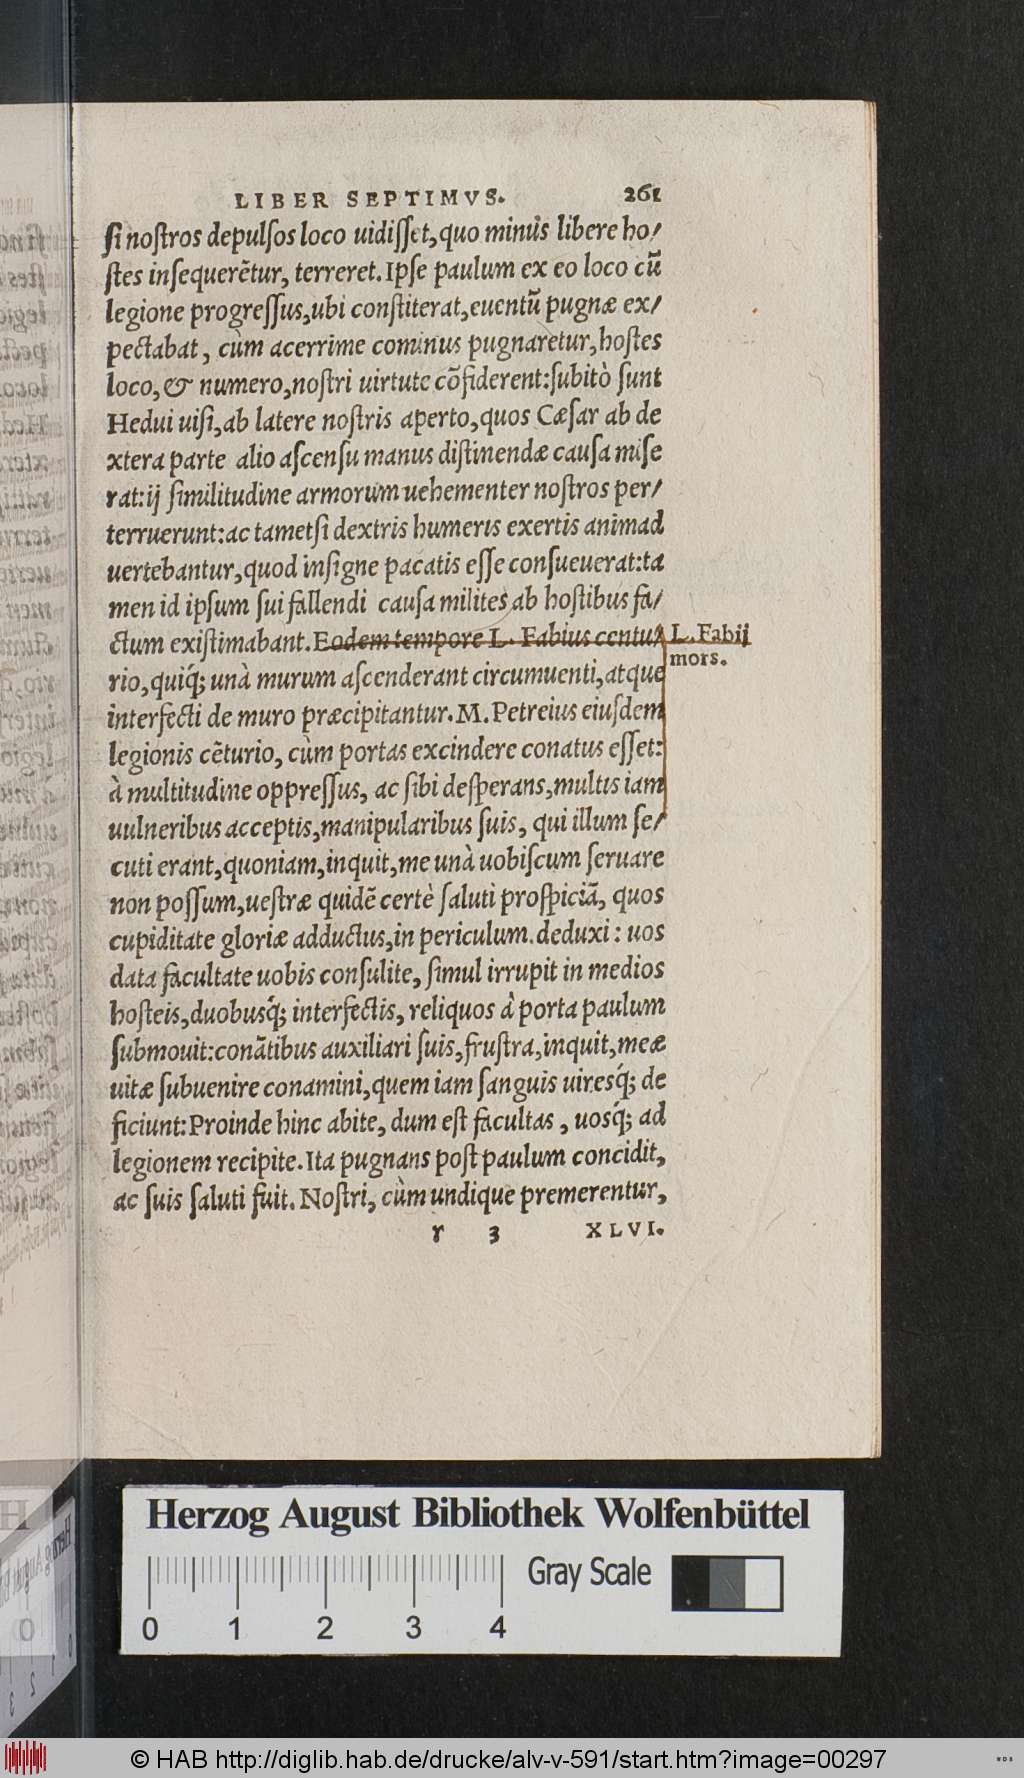 LIBER SEPTIMVS. 261
si nostros depulsos loco uidisset, quo minùs libere ho/
stes insequerẽtur, terreret. Ipse paulum ex eo loco cũ
legione progressus, ubi constiterat, euentũ pugnæ ex/
pectabat, cùm acerrime cominus pugnaretur, hostes
loco, & numero, nostri uirtute cõfiderent: subitò sunt
Hedui uisi, ab latere nostris aperto, quos Cæsar ab de
xtera parte alio ascensu manus distinendæ causa mise
rat: ij similitudine armorum uehementer nostros per/
terruerunt: ac tametsi dextris humeris exertis animad
uertebantur, quod insigne pacatis esse consueuerat: ta
men id ipsum sui fallendi causa milites ab hostibus fa/
ctum existimabant. Eodem tempore L. Fabius centu/
L. Fabij
mors.
rio, quiq́; unà murum ascenderant circumuenti, atque
interfecti de muro præcipitantur. M. Petreius eiusdem
legionis cẽturio, cùm portas excindere conatus esset:
à multitudine oppressus, ac sibi desperans, multis iam
uulneribus acceptis, manipularibus suis, qui illum se/
cuti erant, quoniam, inquit, me unà uobiscum seruare
non possum, uestræ quidẽ certè saluti prospiciã, quos
cupiditate gloriæ adductus, in periculum. deduxi: uos
data facultate uobis consulite, simul irrupit in medios
hosteis, duobusq́; interfectis, reliquos à porta paulum
submouit: conãtibus auxiliari suis, frustra, inquit, meæ
uitæ subuenire conamini, quem iam sanguis uiresq́; de
ficiunt: Proinde hinc abite, dum est facultas, uosq́; ad
legionem recipite. Ita pugnans post paulum concidit,
ac suis saluti fuit. Nostri, cùm undique premerentur,
r 3 XLVI.
Herzog August Bibliothek Wolfenbüttel
Gray Scale
0 1 2 3 4
© HAB http://diglib.hab.de/drucke/alv-v-591/start.htm?image=00297